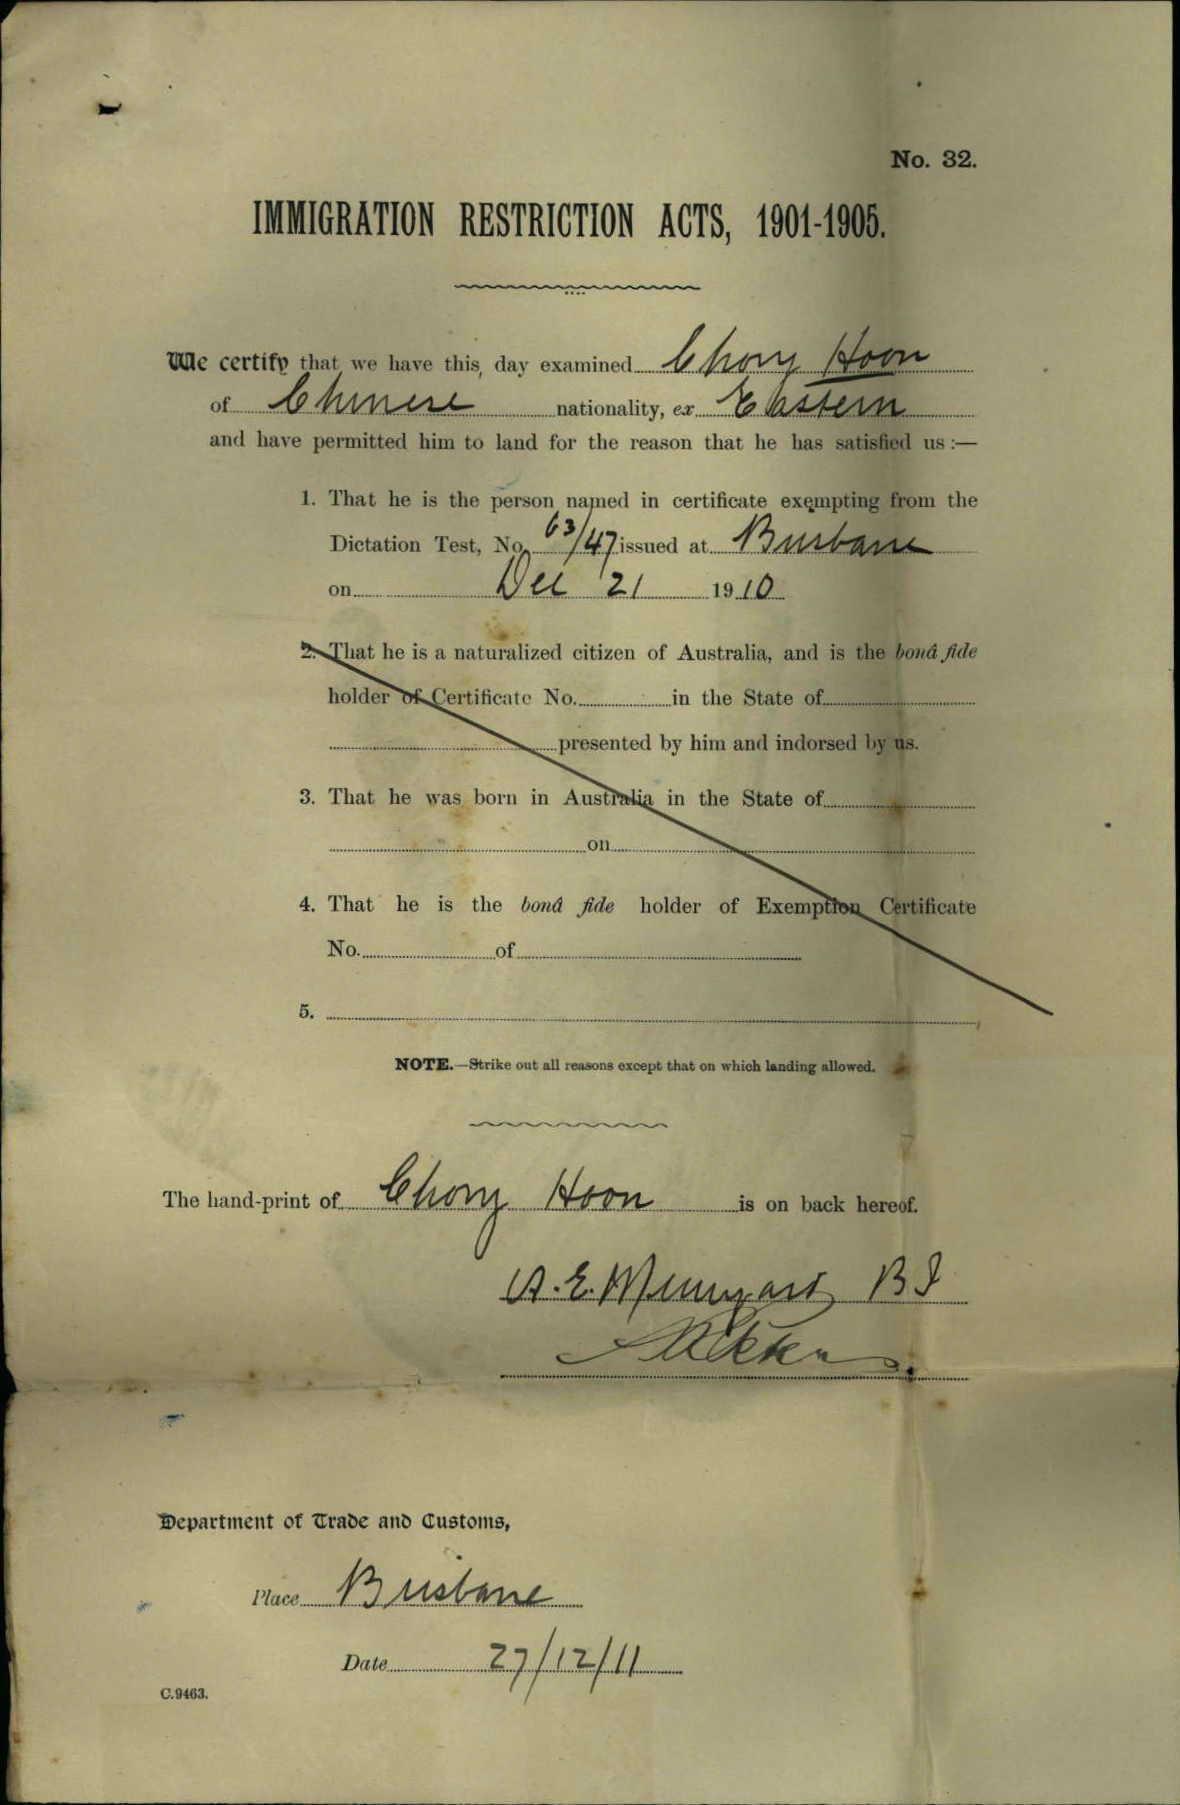 No. 32.
IMMIGRATION RESTRICTION ACTS, 1901-1905.
We certify that we have this day examined Chong Hoon
of Chinese nationality, ex Eastern
and have permitted him to land for the reason that he has satisfied us :—
1. That he is the person named in certificate exempting from the
Dictation Test, No. 63/47 issued at Brisbane
on Dec 21 1910
2. That he is a naturalized citizen of Australia, and is the bonâ fide
holder of Certificate No. in the State of
presented by him and indorsed by us.
3. That he was born in Australia in the State of
on
4. That he is the bonâ fide holder of Exemption Certificate
No. of
5.
NOTE.—Strike out all reasons except that on which landing allowed.
The hand-print of Chong Hoon is on back hereof.
A. E.
Department of Trade and Customs,
Place Brisbane
Date 27/12/11
C.9463.